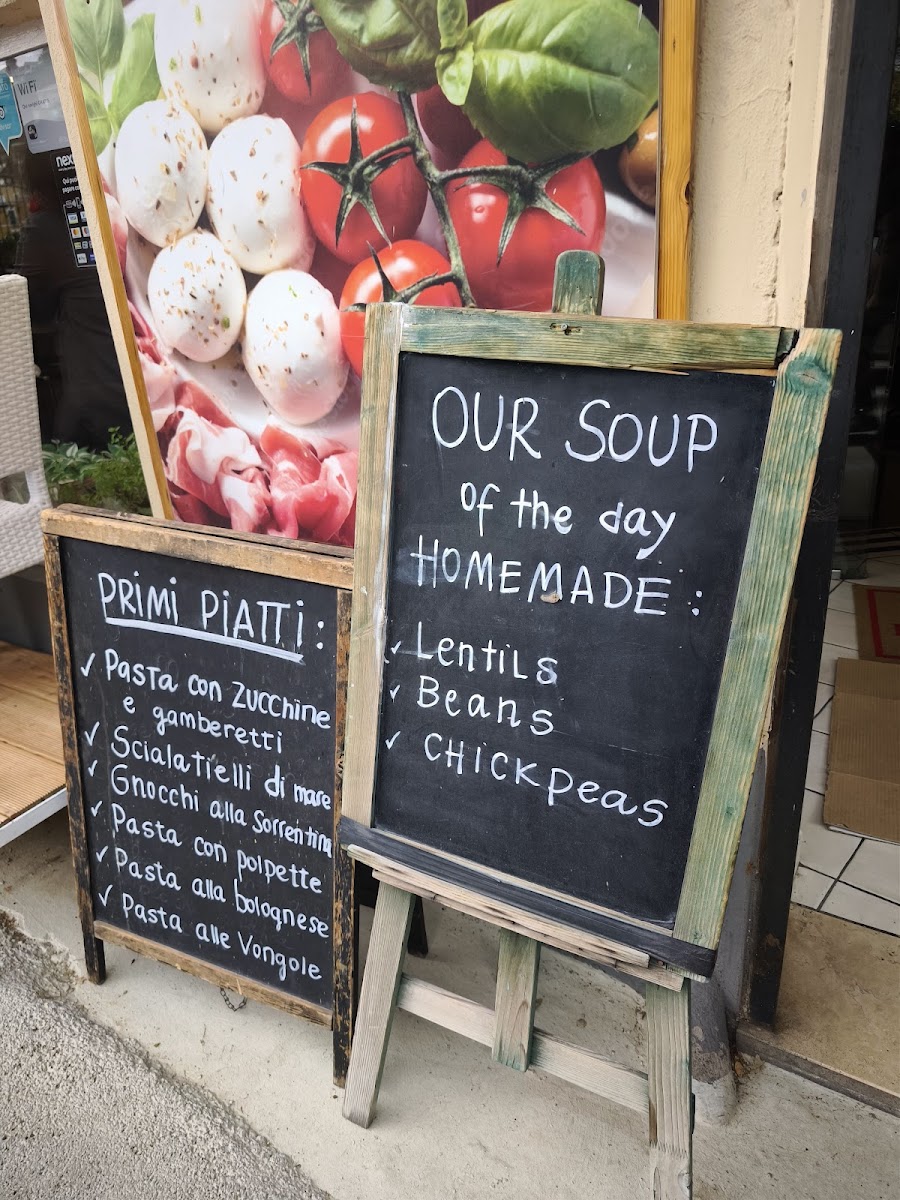 WiFi
nex
PRIMI PIATTI:
✓ Pasta con zucchine
e gamberetti
✓ Scialatielli di mare
✓ Gnocchi alla Sorrentina
✓ Pasta con polpette
✓ Pasta alla bolognese
✓ Pasta alle Vongole
OUR SOUP
of the day
HOMEMADE:
✓ Lentils
✓ Beans
✓ CHICKPeas